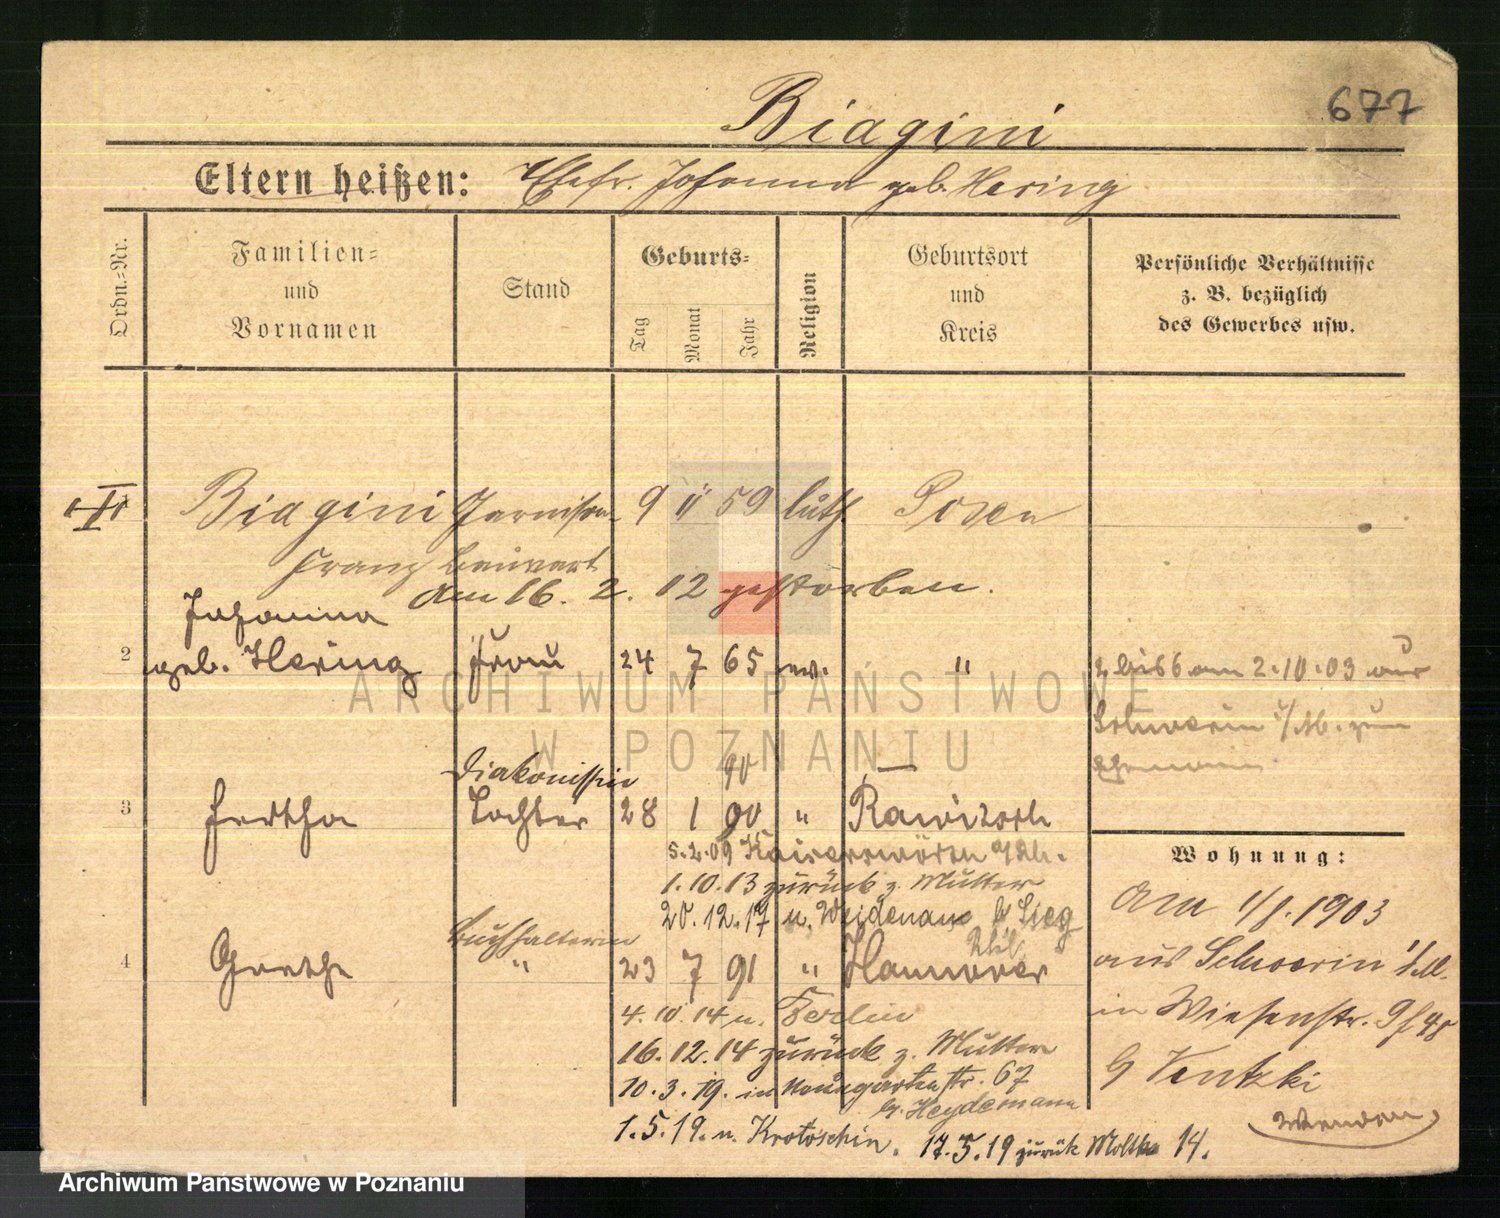 677
Biagini
Eltern heißen: Ehefr. Johanna geb. Hering
Ordn.=Nr.
Familien=
und
Vornamen
Stand
Geburts=
Tag
Monat
Jahr
Religion
Geburtsort
und
Kreis
Persönliche Verhältnisse
z. B. bezüglich
des Gewerbes usw.
1 Biagini Garnison- 9 11 59 luth. Posen
Franz
am 16. 2. 12 gestorben.
Johanna
2 geb. Hering Frau 24 7 65 ev. " 2 bis 6 am 2.10.03 aus
Schwerin i/M. zum
Ehemann
Diakonissin 90 —
3 Hertha Tochter 28 1 90 " Rawitsch
5.2.09 Kaiserswörth a/Rh.
1.10.13 zurück z. Mutter
20.12.17 n. Weidenau Sieg
Buchhalterin
4 Grethe " 23 7 91 " Hannover
4.10.14 n. Berlin
16.12.14 zurück z. Mutter
10.3.19. in Naumgartenstr. 67
b. Heydemann
1.5.19. n. Krotoschin. 17.5.19 zurück Moltke 14.
Wohnung:
Am 1903
aus Schwerin i/M.
in Wiesenstr.
b Ventzki
ARCHIWUM PAŃSTWOWE
W POZNANIU
Archiwum Państwowe w Poznaniu